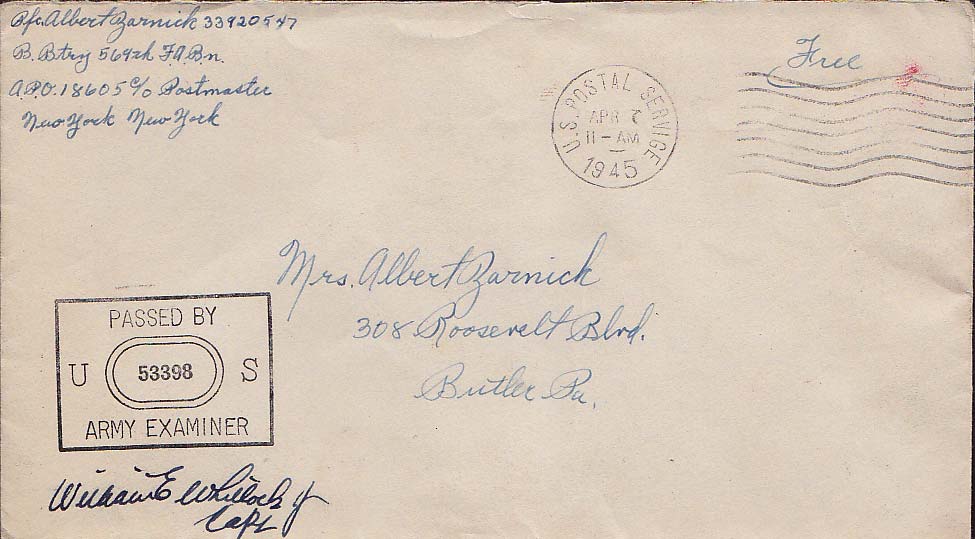 Pfc. Albert Zarnick 33920547
B. Btry 569th F.A.Bn.
A.P.O. 18605 c/o Postmaster
New York New York
Free
U.S. POSTAL SERVICE
APR 7
11-AM
1945
Mrs. Albert Zarnick
308 Roosevelt Blvd.
Butler Pa.
PASSED BY
U 53398 S
ARMY EXAMINER
William E Whitlock Jr
Capt